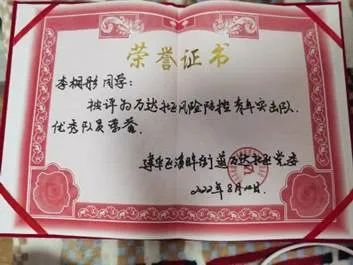 荣誉证书
李桐彤同学:
被评为万达社区风险防控青年突击队
优秀队员荣誉.
建华区满畔街道万达社区党委
2022年8月10日.